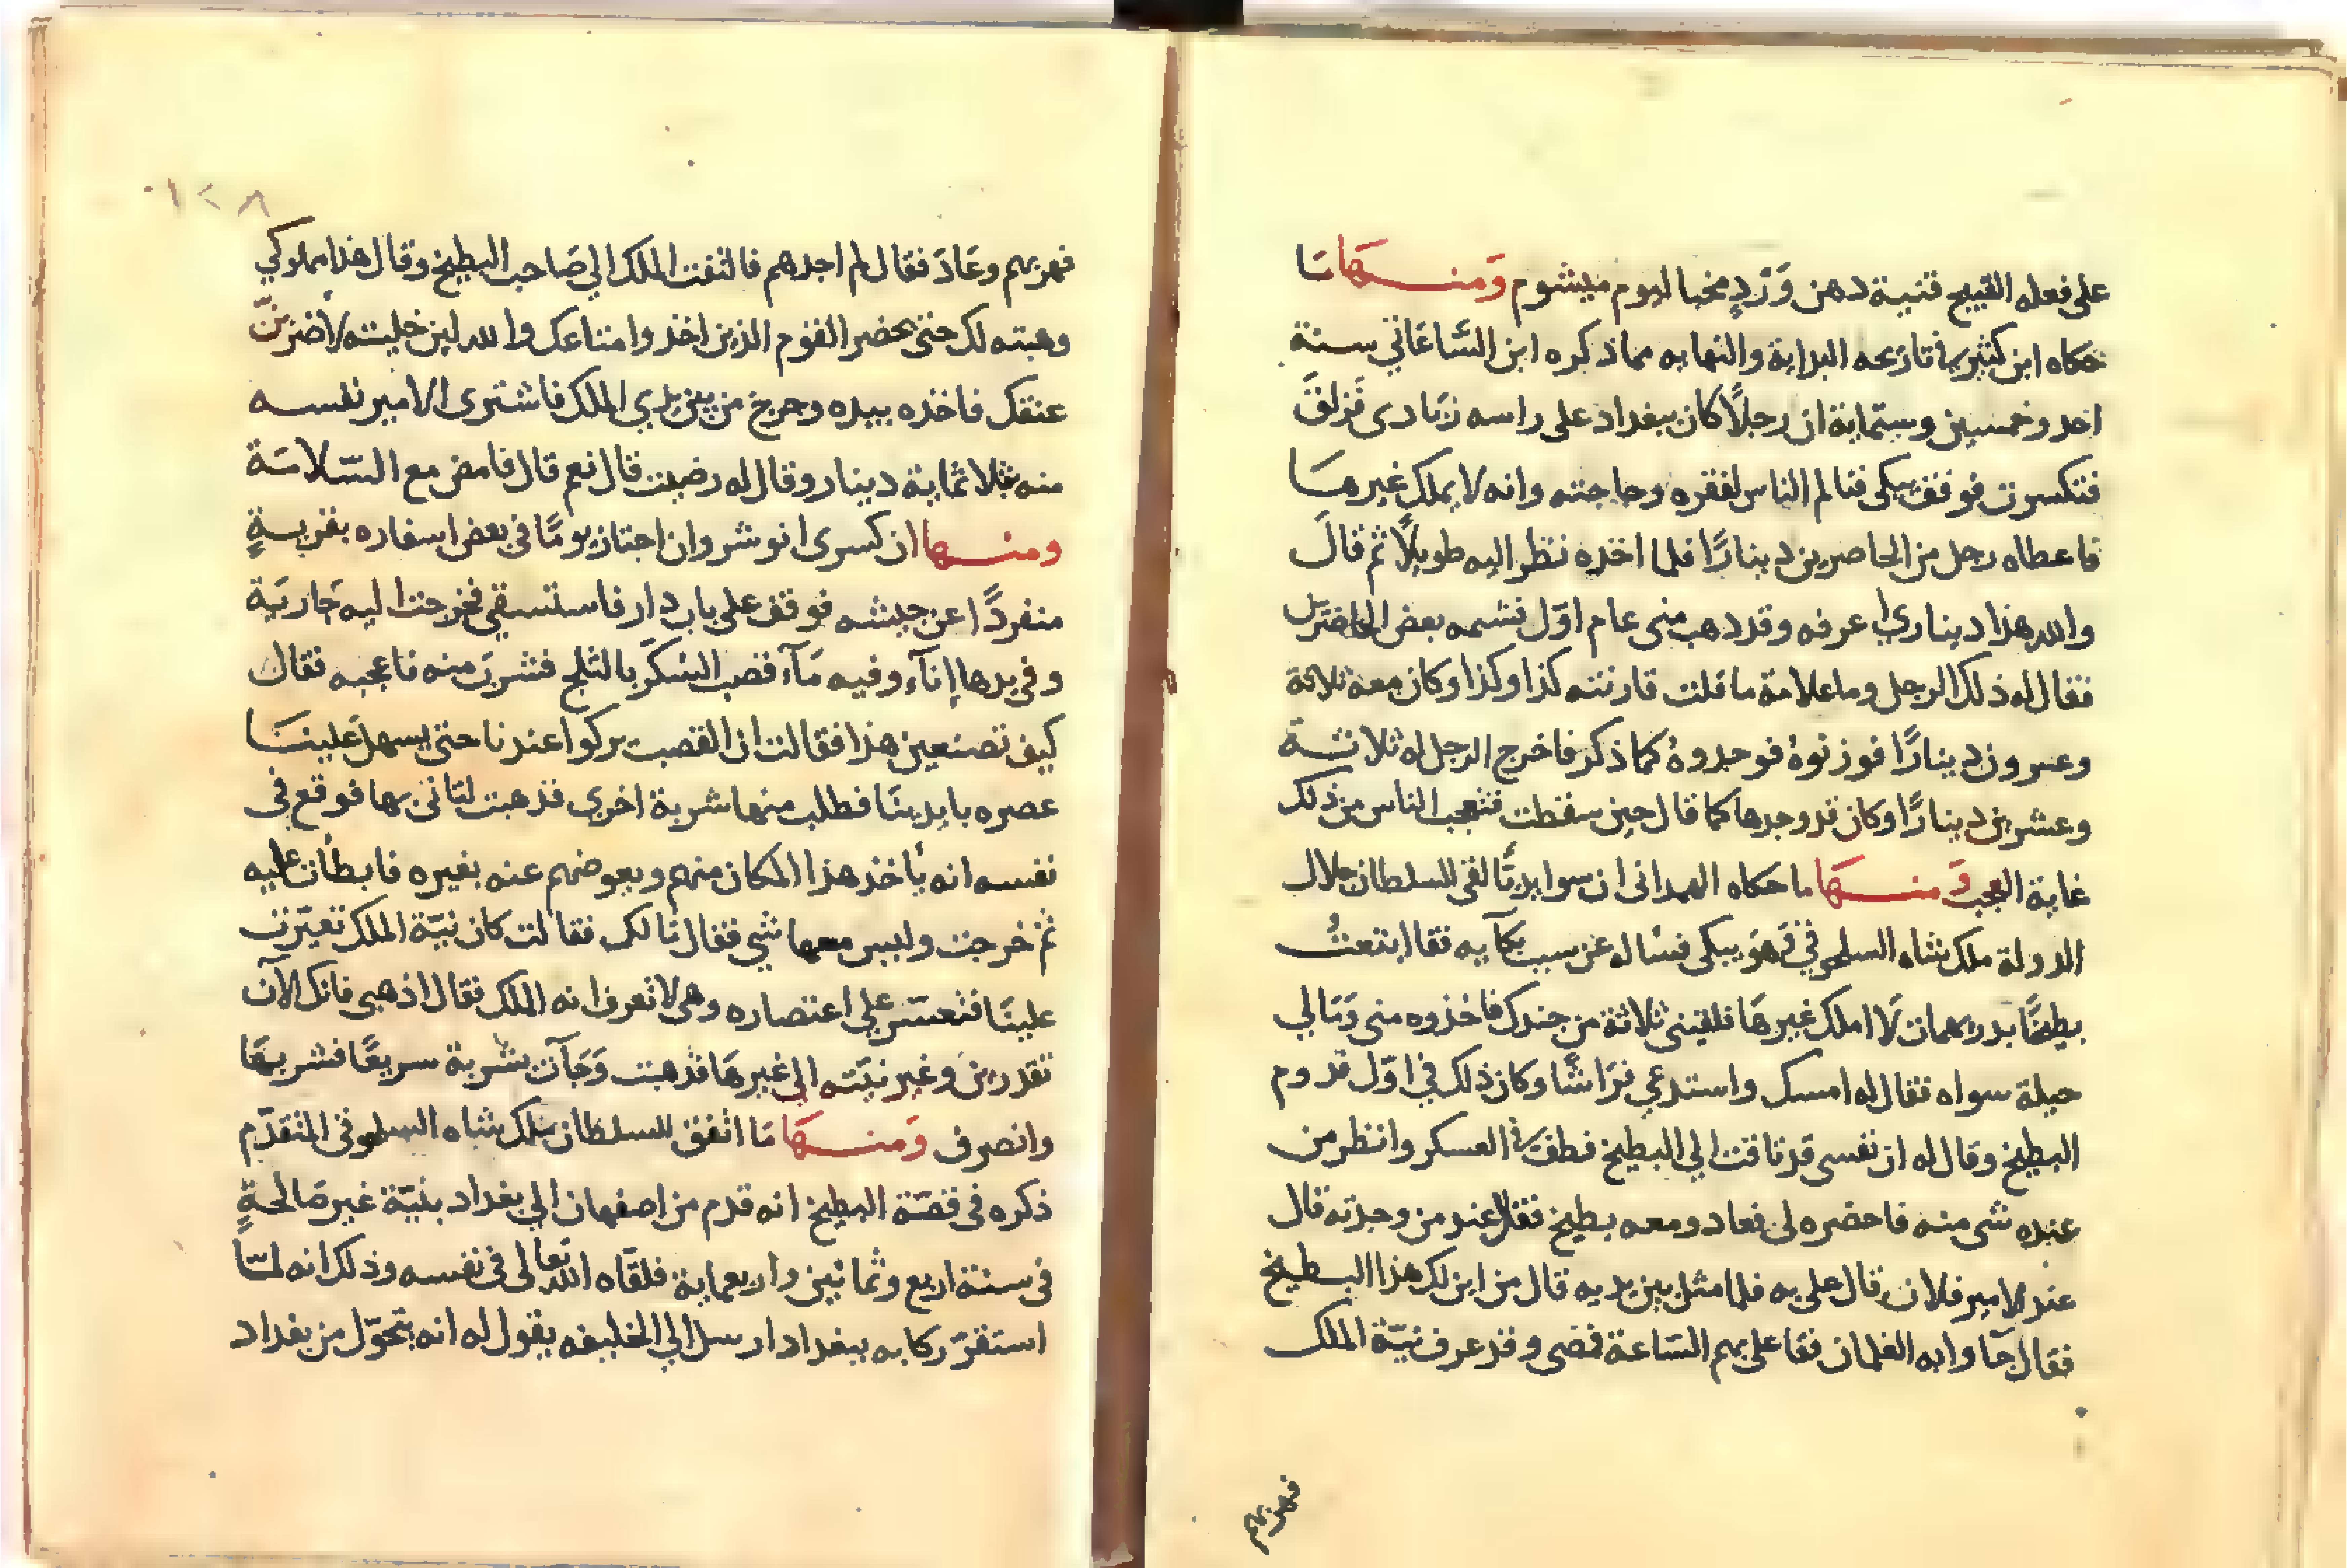 على فعله القبيح قنينة دهن وَرْدٍ مخبا ليوم ميشوم وَمنـــها مَا
حكاه ابن كثير في تاريخه البداية والنهايه مما ذكره ابن السَّاعَاتي سنة
احد وخمسين وستماية ان رجلًا كان ببغداد على راسه زبَادى فزلقَ
فتكسرت فوقف يبكى فتالم الناس لفقره وحاجته وانه لا يملك غيرهَا
فاعطاه رجل من الحاضرين دينارًا فلما اخذه نظر اليه طويلًا ثم قالَ
والله هذا دينارى اعرفه وقد ذهب منى عام اوّل فشمه بعض الحاضرين
فقال له ذلك الرجل وما علامة ما قلت قال زنته كذا وكذا وكان معه ثلاثة
وعسرون دينارًا فوزنوهُ فوجدوهُ كما ذكر فاخرج الرجل له ثلاثـة
وعشرين دينارًا وكان قد وجدها كما قال حين سقطت فتعجب الناس من ذلك
غاية العجب وَمنـــهَا ما حكاه الهمدانى ان سواديًا لقى للسلطان جلال
الدولة ملك شاه السلجوقي وَهوَ يبكى فسْاله عن سبب بكآيه فقا ابتعتُ
بطيخًا بدريهمات لَا املك غيرهَا فلقينى ثلاثة من جندك فاخذوه منى وَمَا لي
حيلة سواه فقال له امسك واستدعي فرَاشًا وكان ذلك في اوّل قدوم
البطيخ وقال له ان نفسى قد تاقت الي البطيخ فطف في العسكر وانظر من
عنده شى منه فاحضره لى فعاد ومعه بطيخ فقال عند من وجدته قال
عند الامير فلان قال على به فلما مثل بين يديه قال من اين لك هذا البطيخ
فقال جَآوا به الغلمان فقا على بهم السَّاعة فمضى وقد عرف نيّة الملك
فهربهم
١٢٨
فهربهم وعَادَ فقال لم اجدهم فالتفت الملك الي صَاحب البطيخ وقال هذا مملوكي
وهبته لك حتى يحضر القوم الذين اخذوا متاعك والله لين خليته لاضربنّ
عنقك فاخذه بيده وخرج من بين يدي الملك فاشترى الامير نفسـه
منه بثلاثماية دينار وقال له رضيت قال نعم قال فامض مع السّلامَة
ومنـــها ان كسرى انوشروان اجتاز يومًا في بعض اسفاره بقريـةٍ
منفردًا عن جيشه فوقف على باب دار فاستسقى فخرجت اليه جَاريَة
وفي يدها إنآء وفيه مَآء قصب السّكّر بالثلج فشربَ منه فاعجبه فقال
كيف تصنعين هذا فقالت ان القصب يزكوا عندنا حتى يسهل علينـا
عصره بايدينَا فطلب منها شربة اخرى فذهبت لتاتى بها فوقع فى
نفسه انه يأخذ هذا المكان منهم ويعوضهم عنه بغيره فابطأت عليه
ثم خرجت وليس معها شي فقال مَا لك فقالت كان نيّة الملك تغيّرت
علينَا فتعسّر على اعتصاره وهى لا تعرف انه الملك فقال اذهبى فانك الآن
تقدرينَ وغير نيّته الي غيرهَا فذهبت وَجَآت بشربة سريعًا فشربهَا
وانصرف وَمنـــهَا مَا اتفق للسلطان ملك شاه السلجوقى المتقدّم
ذكره فى قصّة البطيخ انه قدم من اصفهان الي بغداد بنيّة غير صَالحةٍ
فى سنة اربع وثمانين واربعماية فلقّاه الله تعالى فى نفسه وذلك انه لمّا
استقرّ ركابه ببغداد ارسل الي الخليفه يقول له انه يتحوّل من بغداد